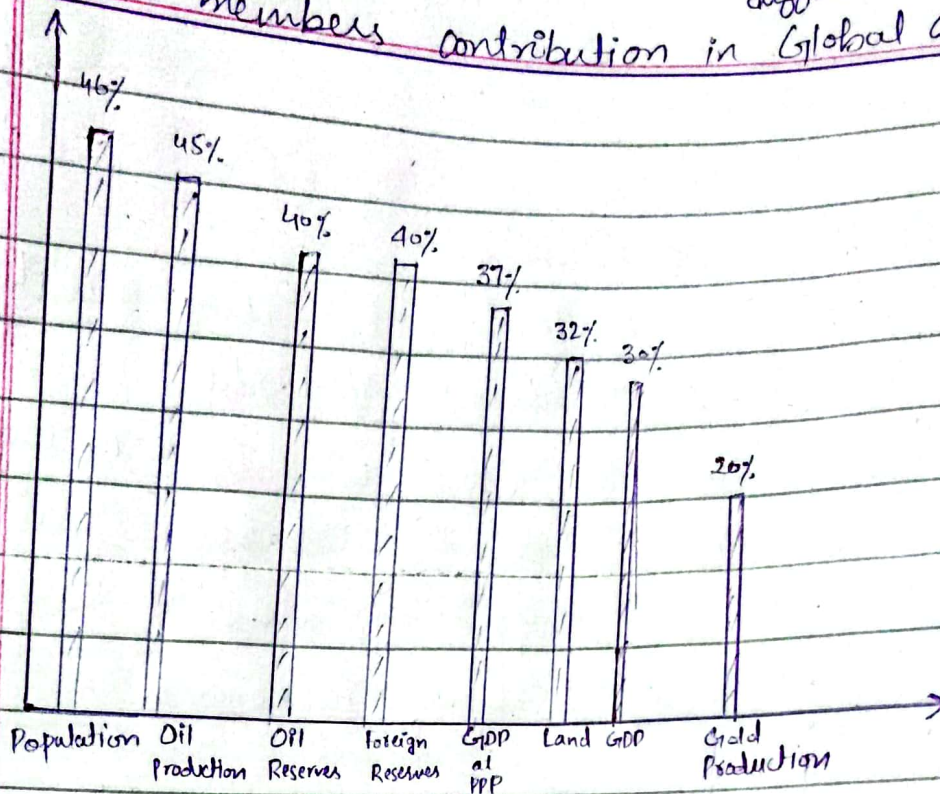 members contribution in Global
46%
45%
40%
40%
37%
32%
30%
20%
Population Oil Production Oil Reserves Foreign Reserves GDP at PPP Land GDP Gold Production